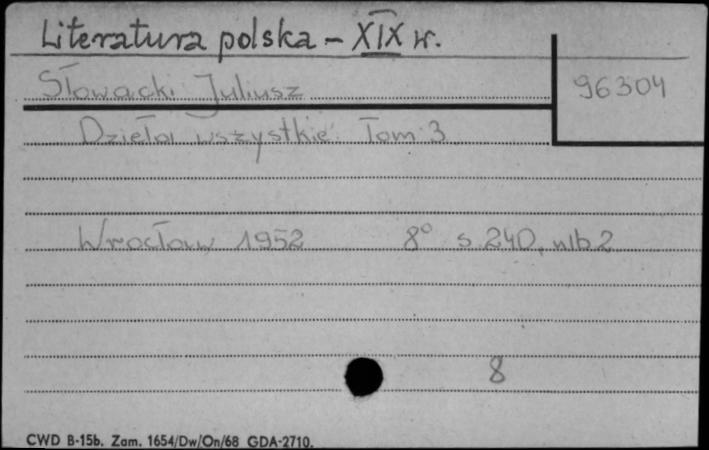 Literatura polska – XIX w.
Słowacki Juliusz
96304
Dzieła wszystkie. Tom 3
Wrocław 1952 8° s. 240, nlb. 2
8
CWD B-15b. Zam. 1654/Dw/On/68 GDA-2710.